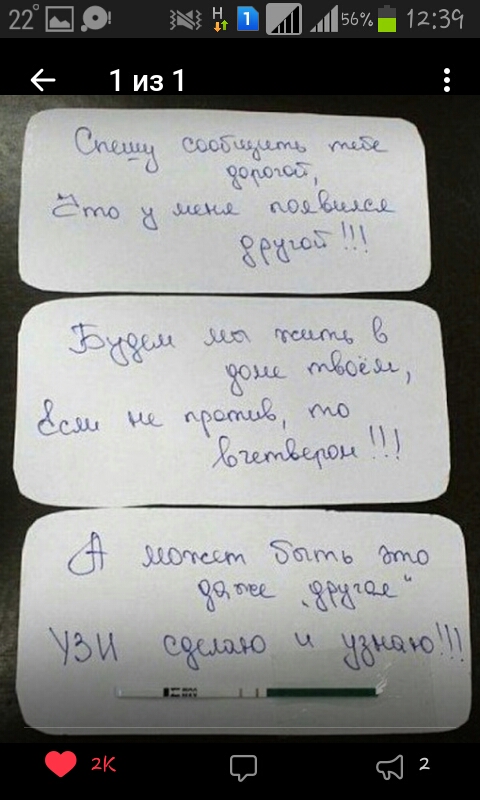 22°
H
1
56%
12:39
1 из 1
Спешу сообщить тебе
дорогой,
Что у меня появился
другой!!!
Будем мы жить в
доме твоём,
Если не против, то
вчетвером!!!
А может быть это
даже „другая“
УЗИ сделаю и узнаю!!!
2K
2